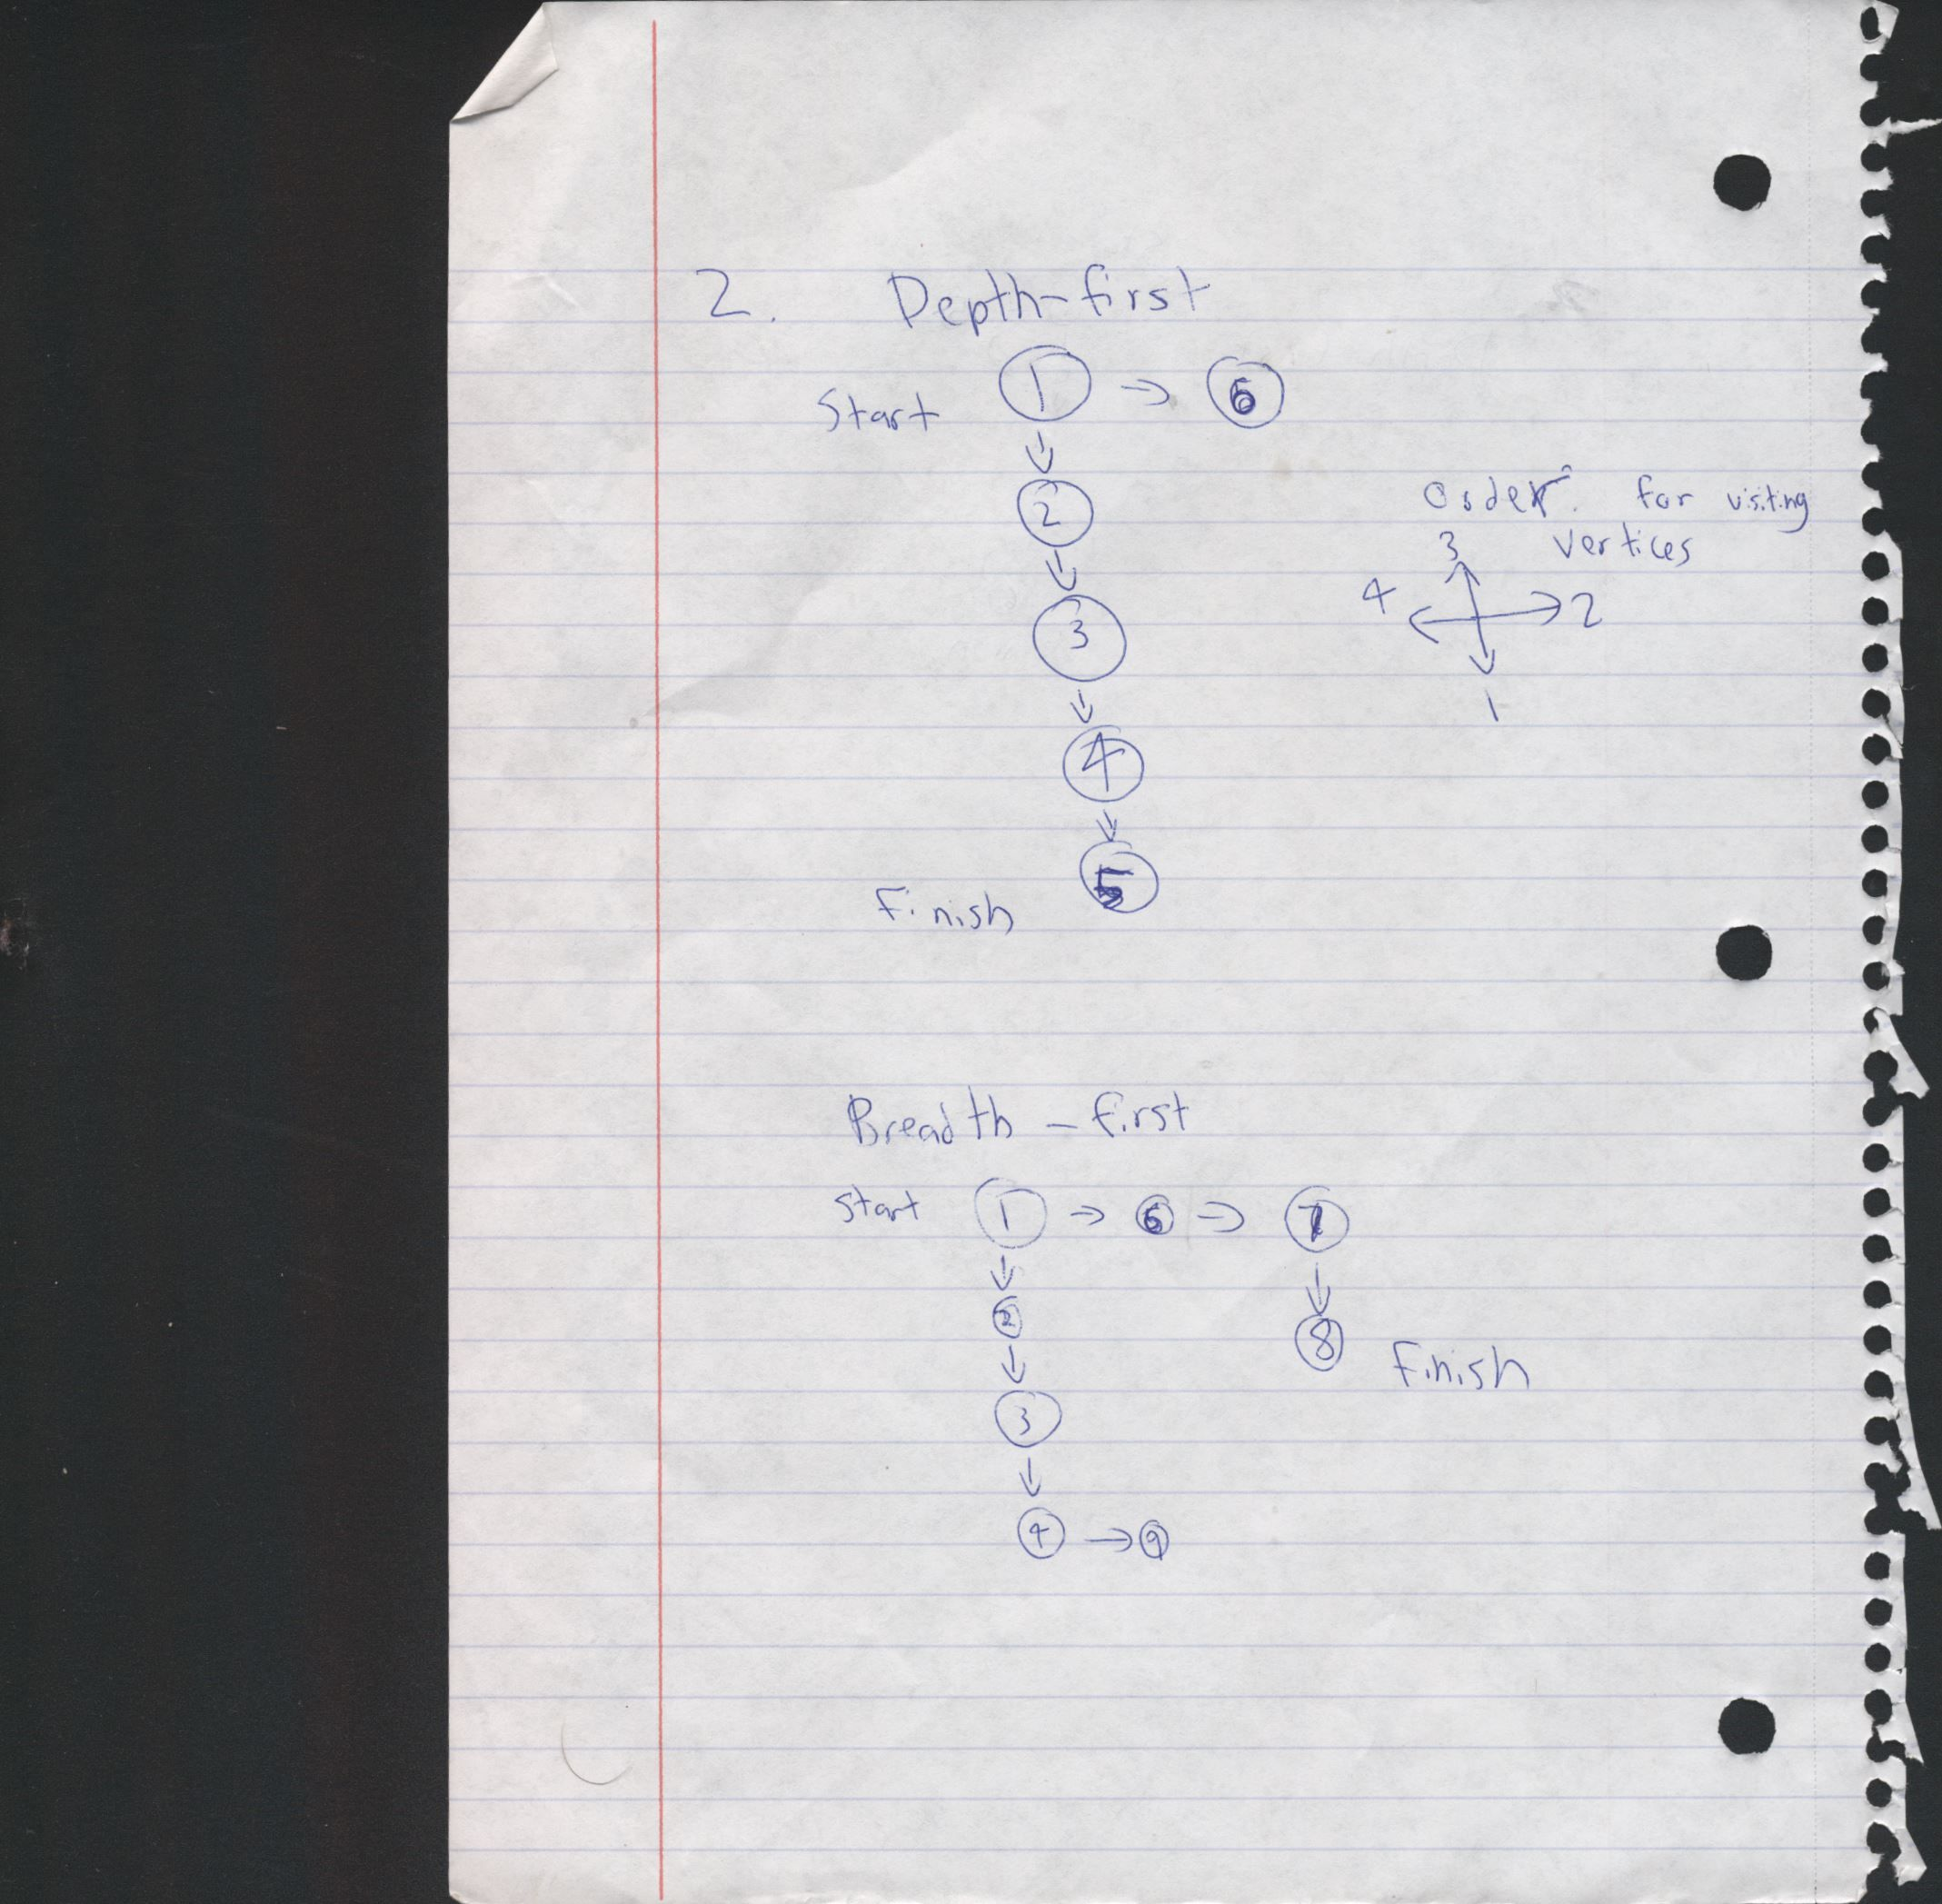 2. Depth-first
Start 1 → 6
2
3
4
Finish 5
Order for visiting
vertices
3
4 2
1
Breadth-first
Start 1 → 6 → 7
2 8 Finish
3
4 → 9